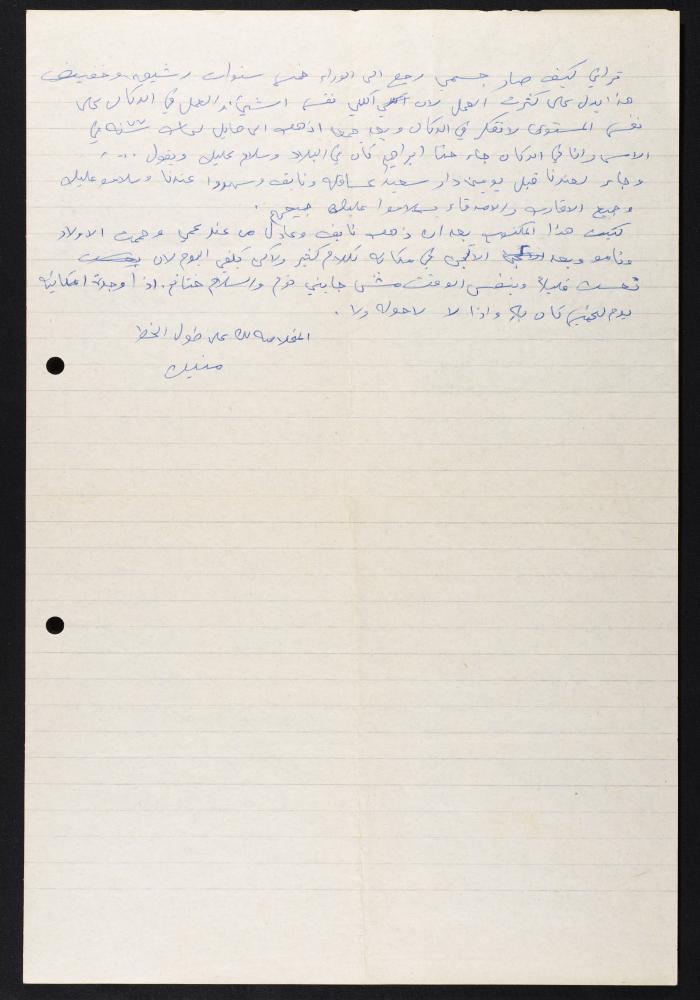 كيف صار جسمي رجع الى الوراء خمس سنوات رشيقه وخفيفه
هذا يدل على كثرت العمل لان اكلي نفس الشيئ والعمل في الدكان على
نفس المستوى لا تفكر في الدكان وبعد اذهب الى
الامس وانا في الدكان جاء حنا ابراهيم كان في البلاد وسلام عليك ويقول ....
وجاء لعندنا قبل يومين دار سعيد عساقله ونايف وسهروا عندنا وسلامو عليك
وجميع الاقارب والاصدقاء يسلاموا عليك جميعهم .
كتبت هذا المكتوب بعد ان ذهب نايف وعادل من عند عمي وحمت الاولاد
ونامو وبعد في مكانه كلام كثير ولاكن كلفي اليوم لان
تعست قليلاً وبنفس الوقت مشى جايني نوم والسلام ختام. اذا وجدة امكانيه
يوم الخميس كان به واذا لا لاحوله ولا .
المخلاصه لك على طول الخط